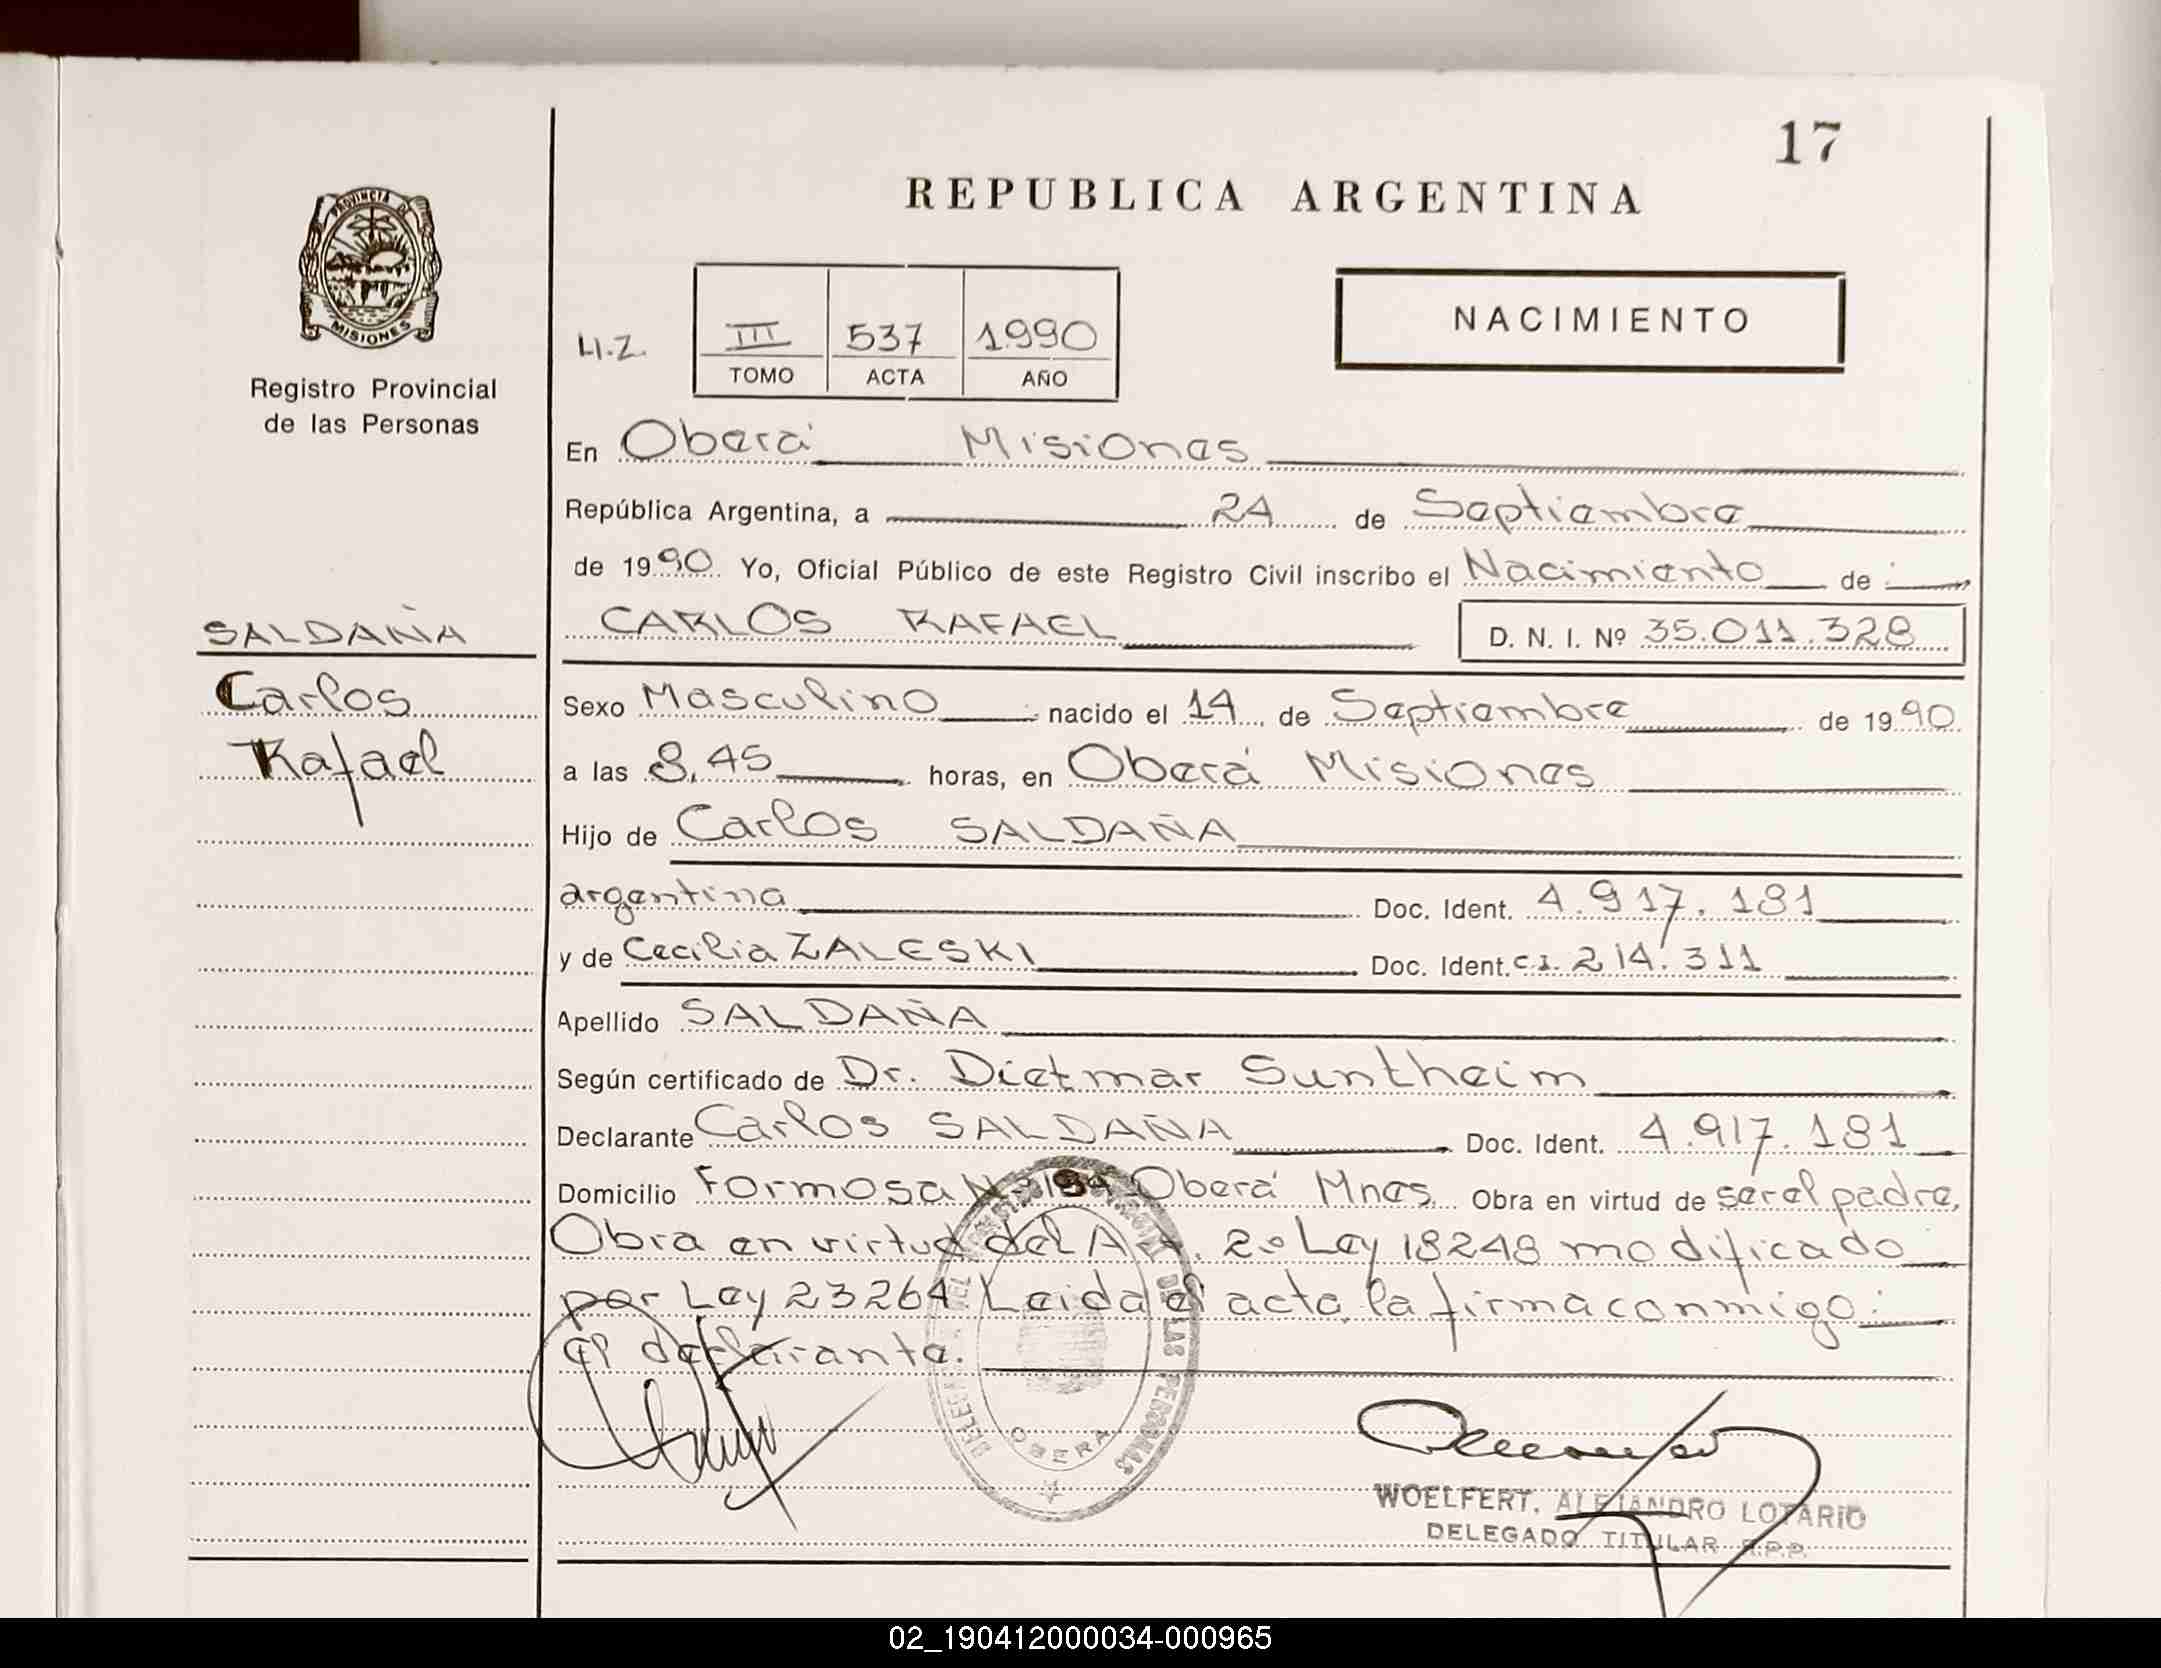 17
REPUBLICA ARGENTINA
PROVINCIA DE
MISIONES
Registro Provincial
de las Personas
III 537 1990
TOMO ACTA AÑO
NACIMIENTO
En Oberá Misiones
República Argentina, a 24 de Septiembre
de 1990 Yo, Oficial Público de este Registro Civil inscribo el Nacimiento de :
SALDAÑA
Carlos
Rafael
CARLOS RAFAEL D. N. I. Nº 35.011.328
Sexo Masculino nacido el 14 de Septiembre de 1990
a las 8,45 horas, en Oberá Misiones
Hijo de Carlos SALDAÑA
argentina Doc. Ident. 4.917.181
y de Cecilia ZALESKI Doc. Ident. C.I. 214.311
Apellido SALDAÑA
Según certificado de Dr. Dietmar Suntheim
Declarante Carlos SALDAÑA Doc. Ident. 4.917.181
Domicilio Formosa Oberá Mnes. Obra en virtud de ser el padre,
Obra en virtud del Art. 2º Ley 18248 modificado
por Ley 23264 Leida el acta, la firma conmigo:
el declarante.
DE LAS PERSONAS
OBERA
WOELFERT, ALEJANDRO LOTARIO
DELEGADO TITULAR R.P.P.
02_190412000034-000965